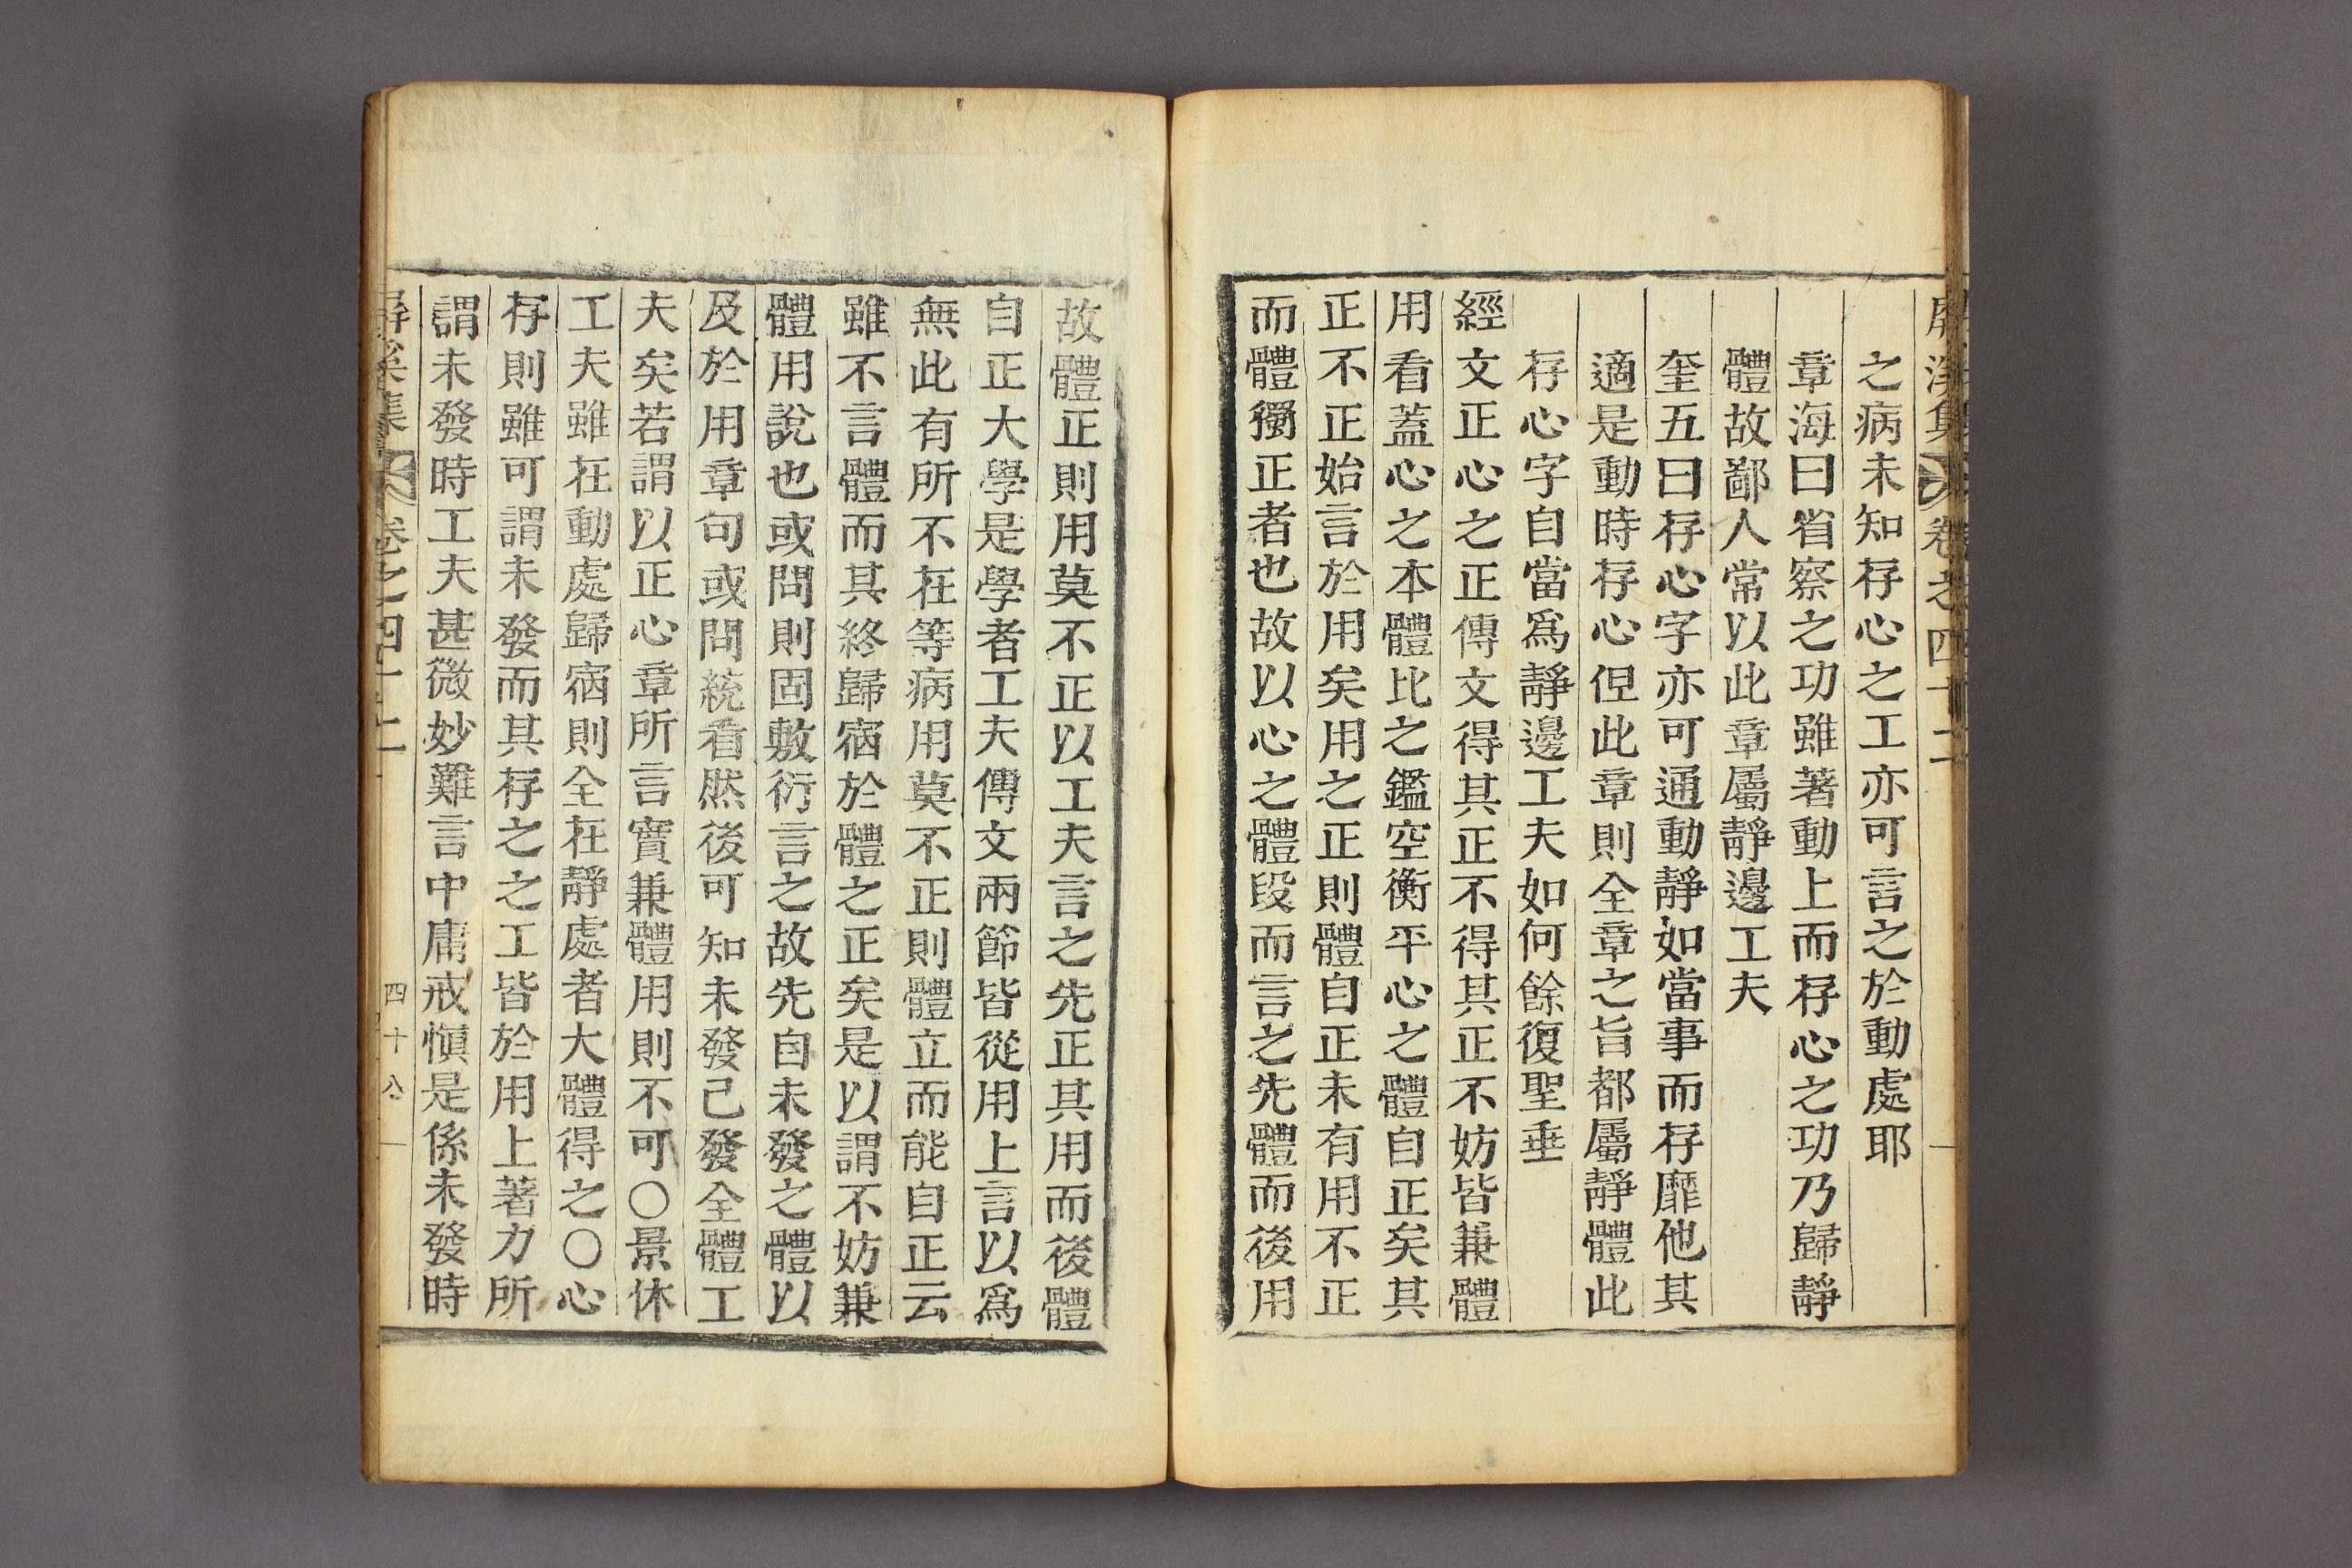 屛溪集 卷之四十二
之病未知存心之工亦可言之於動處耶
章海曰省察之功雖著動上而存心之功乃歸靜
體故鄙人常以此章屬靜邊工夫
奎五曰存心字亦可通動靜如當事而存靡他其
適是動時存心但此章則全章之旨都屬靜體此
存心字自當爲靜邊工夫如何餘復聖垂
經文正心之正傳文得其正不得其正不妨皆兼體
用看蓋心之本體比之鑑空衡平心之體自正矣其
正不正始言於用矣用之正則體自正未有用不正
而體獨正者也故以心之體段而言之先體而後用
故體正則用莫不正以工夫言之先正其用而後體
自正大學是學者工夫傳文兩節皆從用上言以爲
無此有所不在等病用莫不正則體立而能自正云
雖不言體而其終歸宿於體之正矣是以謂不妨兼
體用說也或問則固敷衍言之故先自未發之體以
及於用章句或問統看然後可知未發已發全體工
夫矣若謂以正心章所言實兼體用則不可○景休
工夫雖在動處歸宿則全在靜處者大體得之○心
存則雖可謂未發而其存之之工皆於用上著力所
謂未發時工夫甚微妙難言中庸戒愼是係未發時
屛溪集 卷之四十二 四十八